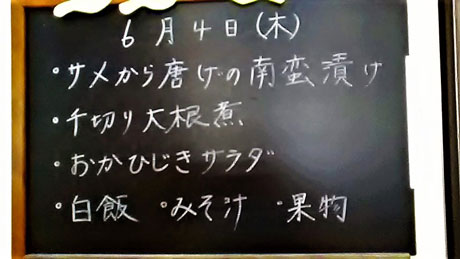 6月4日(木)
・サメから唐げの南蛮漬け
・千切り大根煮
・おかひじきサラダ
・白飯 ・みそ汁 ・果物